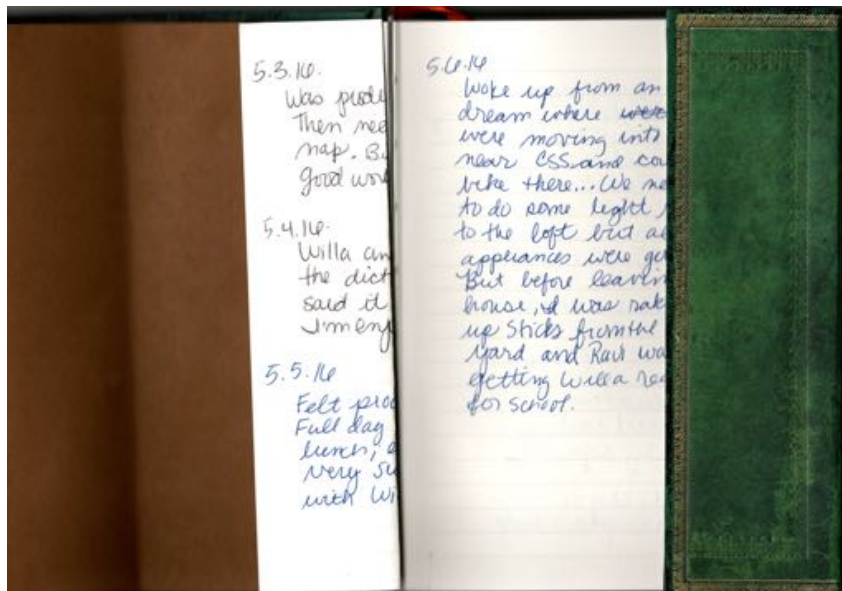 5.3.16.
Was produ
Then nee
nap. Bu
good wor
5.4.16.
Willa an
the dict
said it
I'm enj
5.5.16
Felt prod
Full day
lunch,
very su
with Wi
5.6.16
Woke up from an
dream where were
were moving into
near CSS and cou
bike there... We ne
to do some light
to the loft but all
appliances were go
But before leavin
house, I was rak
up sticks from the
yard and Ravi wa
getting Willa rea
for school.